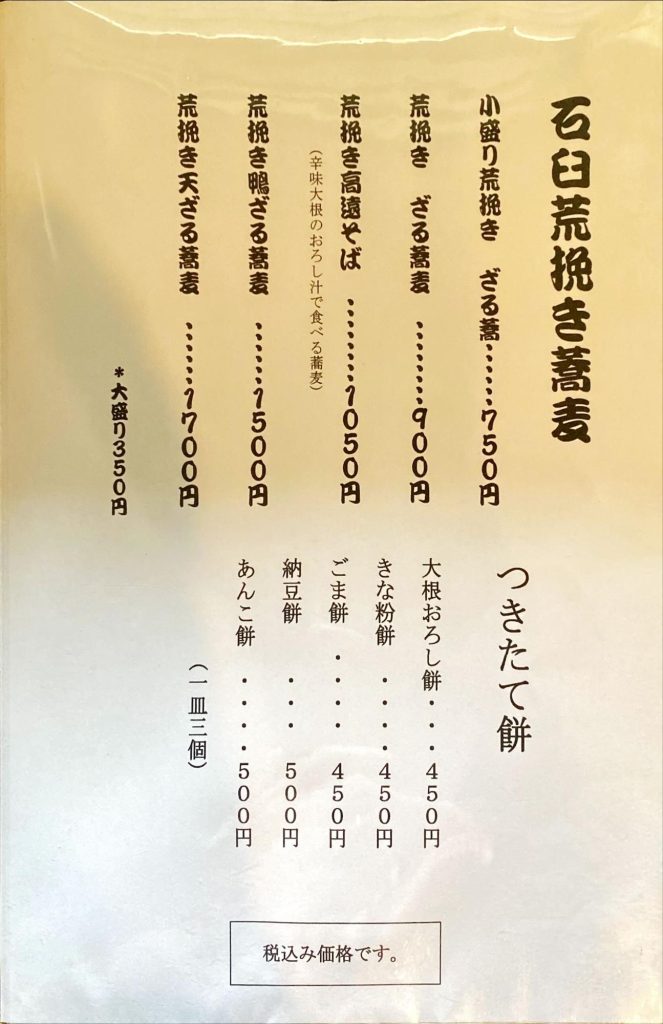 石臼荒挽き蕎麦
小盛り荒挽き　ざる蕎‥‥‥750円
荒挽き　ざる蕎麦　‥‥‥‥900円
荒挽き高遠そば　‥‥‥‥1050円
（辛味大根のおろし汁で食べる蕎麦）
荒挽き鴨ざる蕎麦　‥‥‥1500円
荒挽き天ざる蕎麦　‥‥‥1700円
＊大盛り350円
つきたて餅
大根おろし餅・・・450円
きな粉餅　・・・・450円
ごま餅　・・・・　450円
納豆餅　　・・・　500円
あんこ餅　・・・・500円
（一皿三個）
税込み価格です。